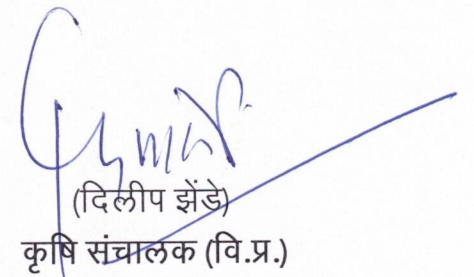 (दिलीप झेंडे)
कृषि संचालक (वि.प्र.)